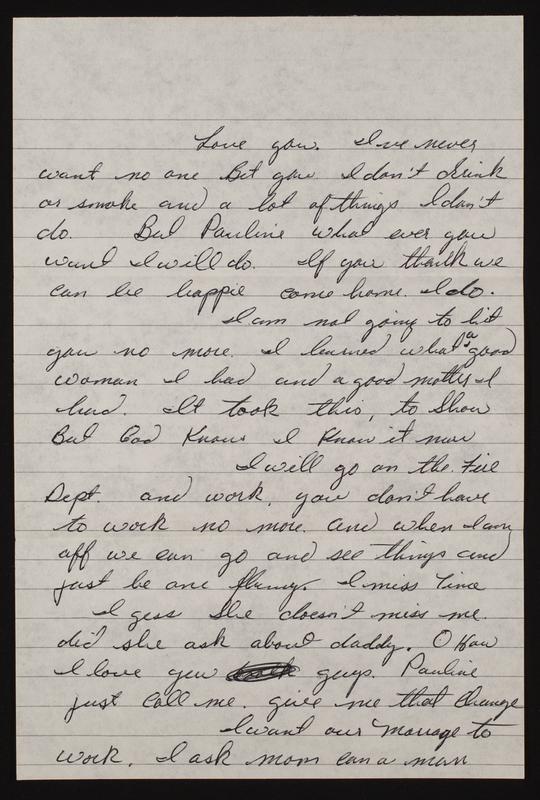 Love you. I've never
want no one But you I don't drink
or smoke and a lot of things I don't
do. But Pauline what ever you
want I will do. If you thank we
can be happie come home. I do.
I am not going to hit
you no more. I learned what a good
woman I had and a good mother I
had. It took this, to Show
But God Knows I Know it now
I will go on the Fire
Dept. and work, you don't have
to work no more. and when I am
off we can go and see things and
just be one flumy. I miss Tine
I gess She doesn't miss me.
did she ask about daddy. O How
I love you guys. Pauline
just Call me. give me that Change
I want our marrage to
work. I ask mom can a man